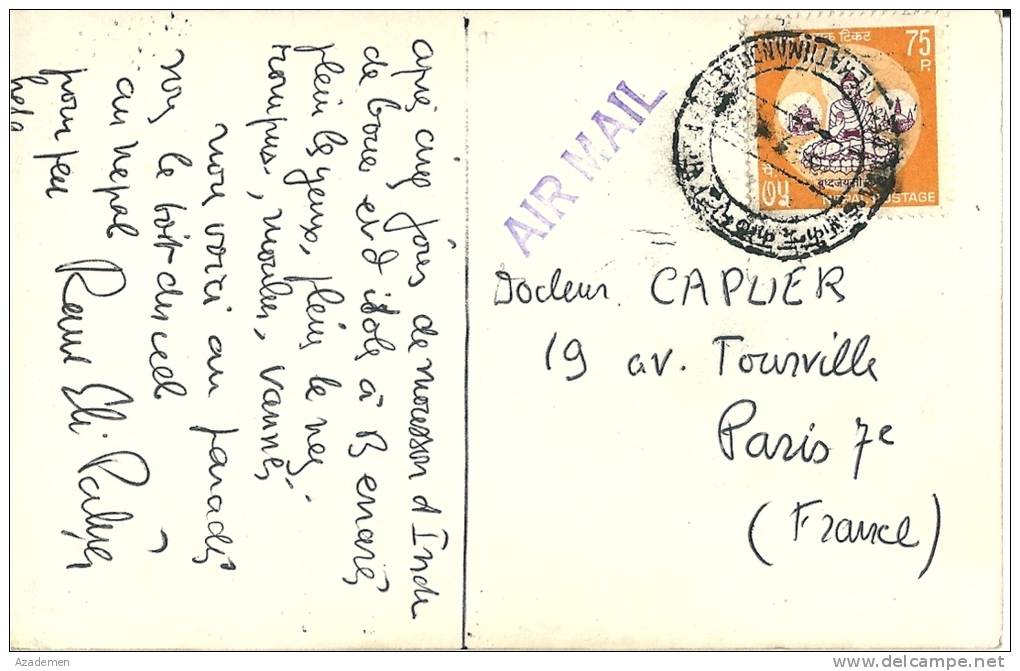 après cinq jours de mousson d Inde
de boue et d idole à Bénarès
plein les yeux, plein le nez..
rompus, moulus, vannés
nous voici au paradis
le toit du ciel
au nepal
pour peu
AIR MAIL
75
P.
७५
बुद्धजयन्ती
NEPAL POSTAGE
KATHMANDU
Docteur CAPLIER
19 av. Tourville
Paris 7e
(France)
Azademen
www.delcampe.net